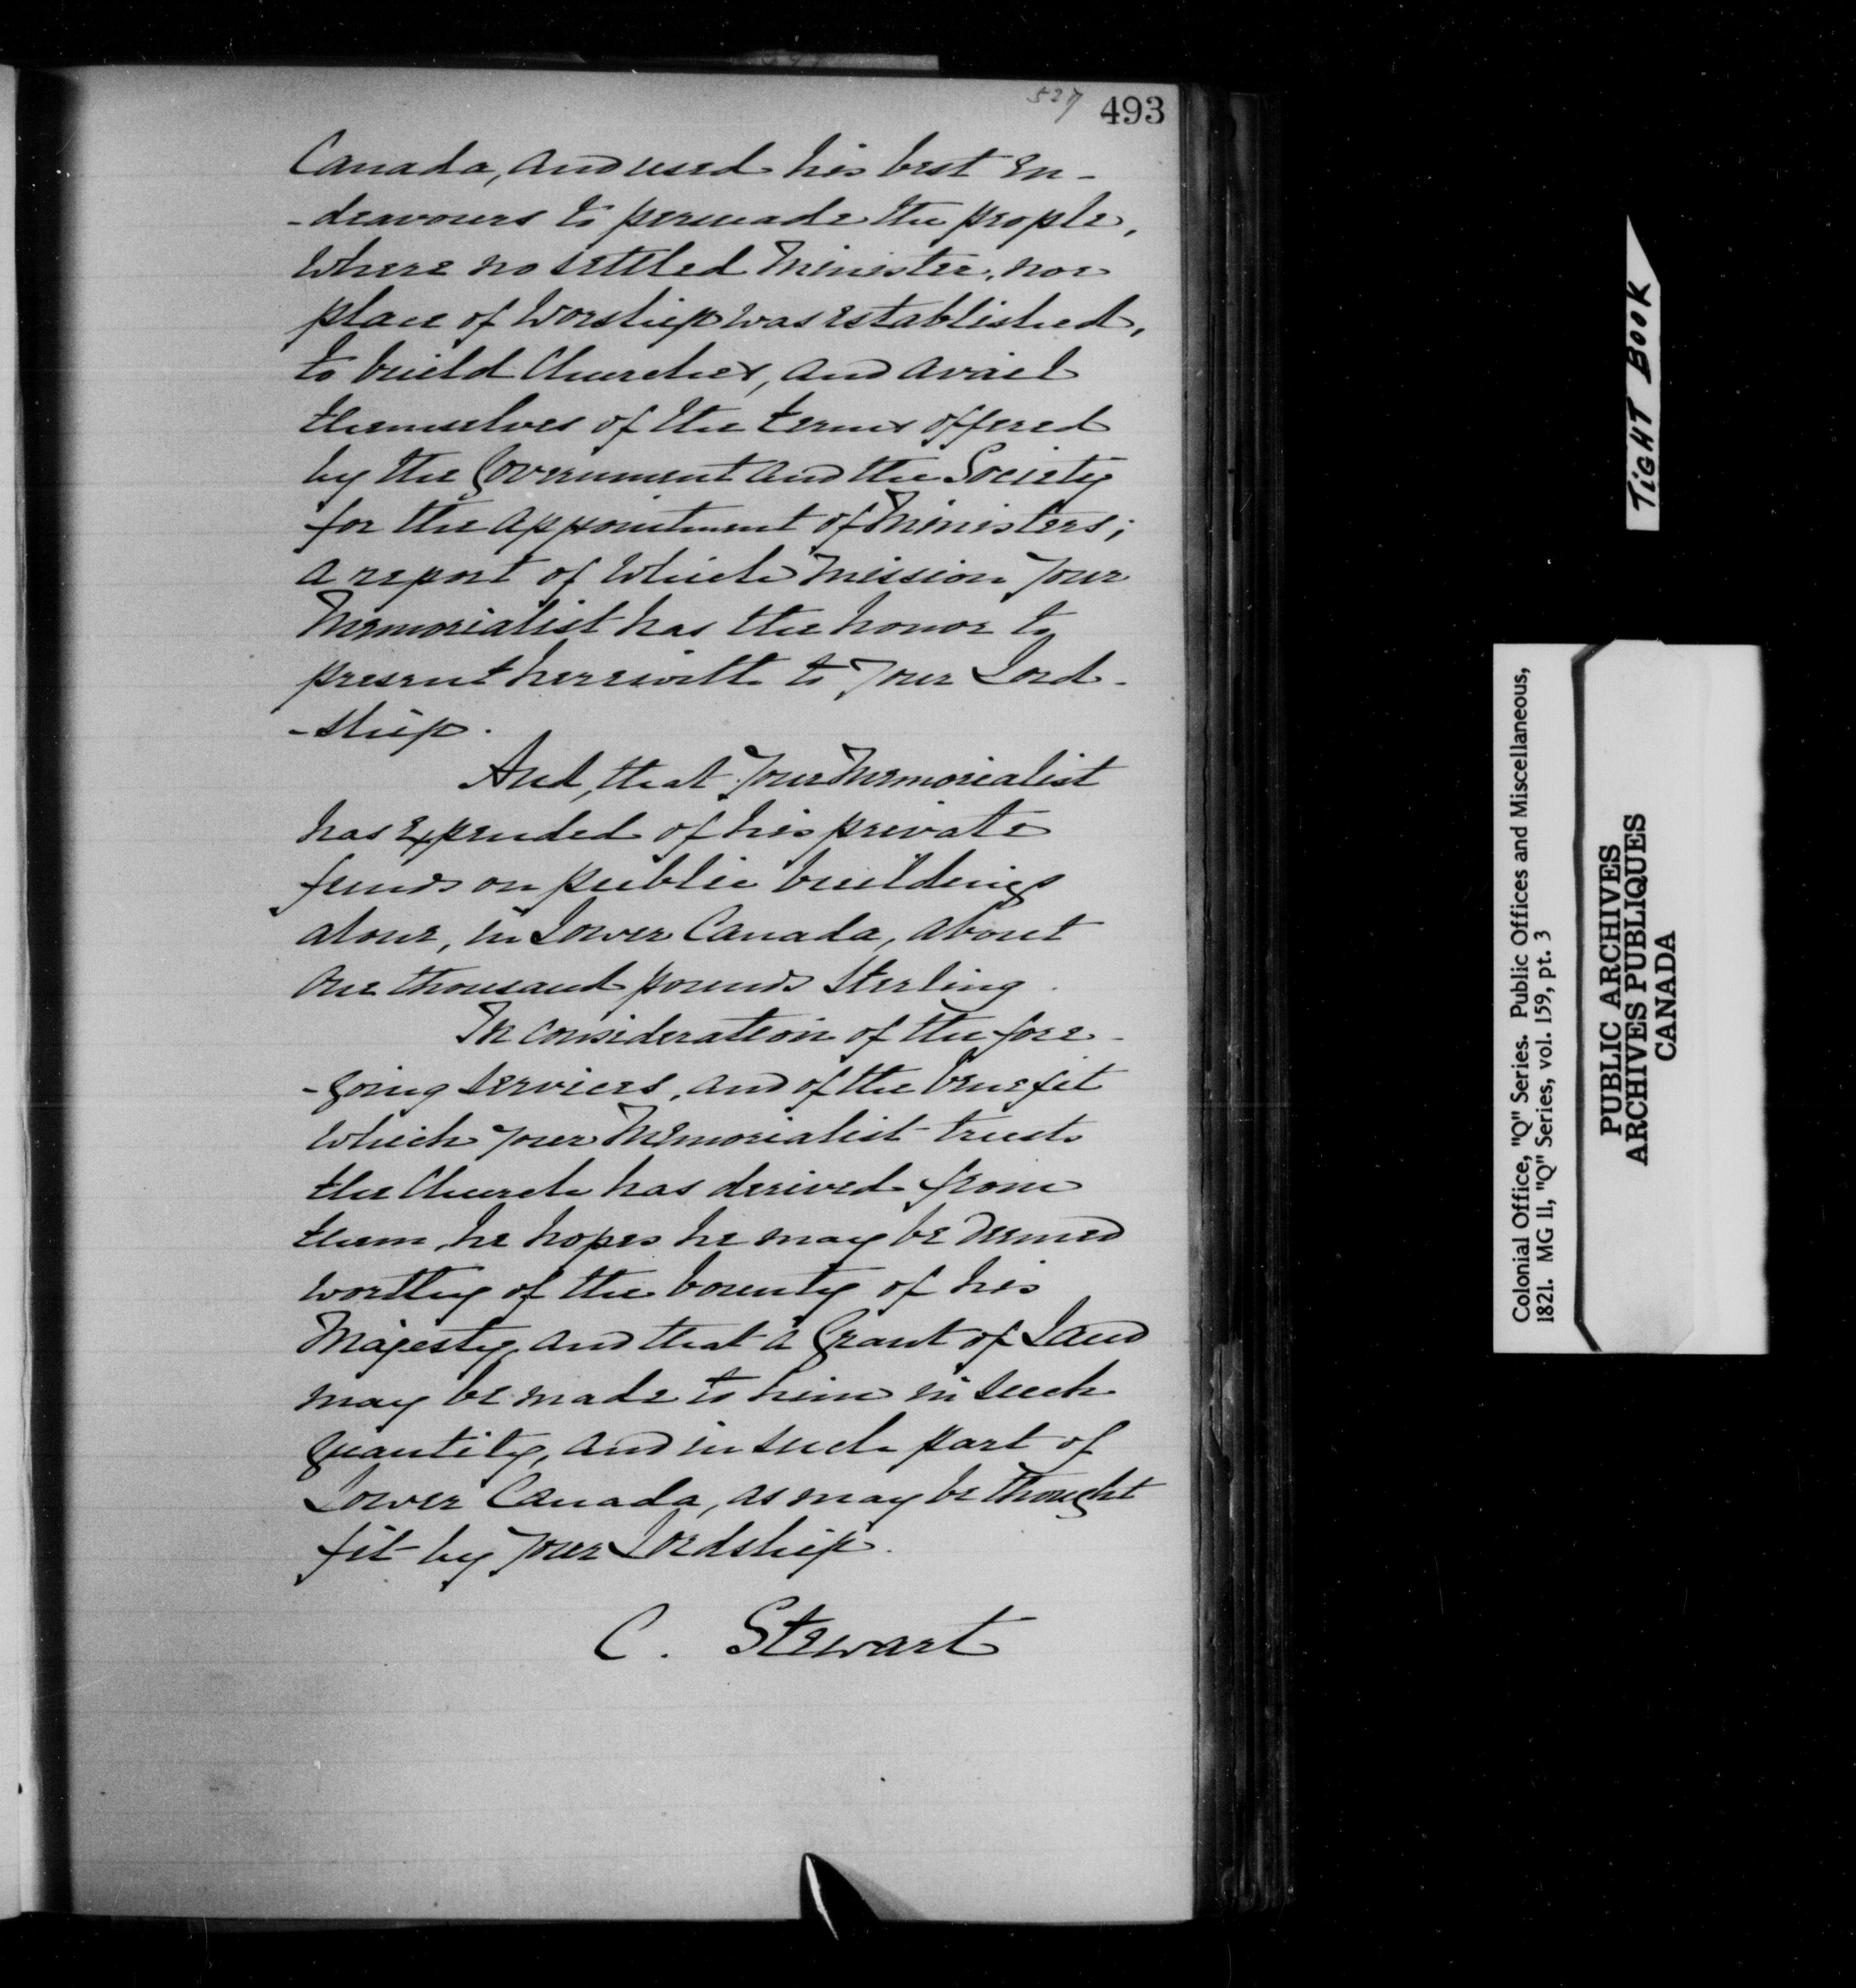 527 493
Canada, and used his best en-
-deavours to persuade the people,
where no settled Minister, nor
place of Worship was established,
to build Churches, and avail
themselves of the terms offered
by the Government and the Society
for the appointment of Ministers;
a report of which Mission Your
Memorialist has the honor to
present herewith to Your Lord-
-ship.
And, that Your Memorialist
has expended of his private
funds on public buildings
alone, in Lower Canada, about
One thousand pounds Sterling.
In consideration of the fore-
-going services, and of the benefit
which your Memorialist trusts
the Church has derived from
them, he hopes he may be deemed
worthy of the bounty of his
Majesty, and that a Grant of Land
may be made to him in such
quantity, and in such part of
Lower Canada, as may be thought
fit by your Lordship.
C. Stewart
TIGHT BOOK
Colonial Office, "Q" Series. Public Offices and Miscellaneous,
1821. MG 11, "Q" Series, vol. 159, pt. 3
PUBLIC ARCHIVES
ARCHIVES PUBLIQUES
CANADA